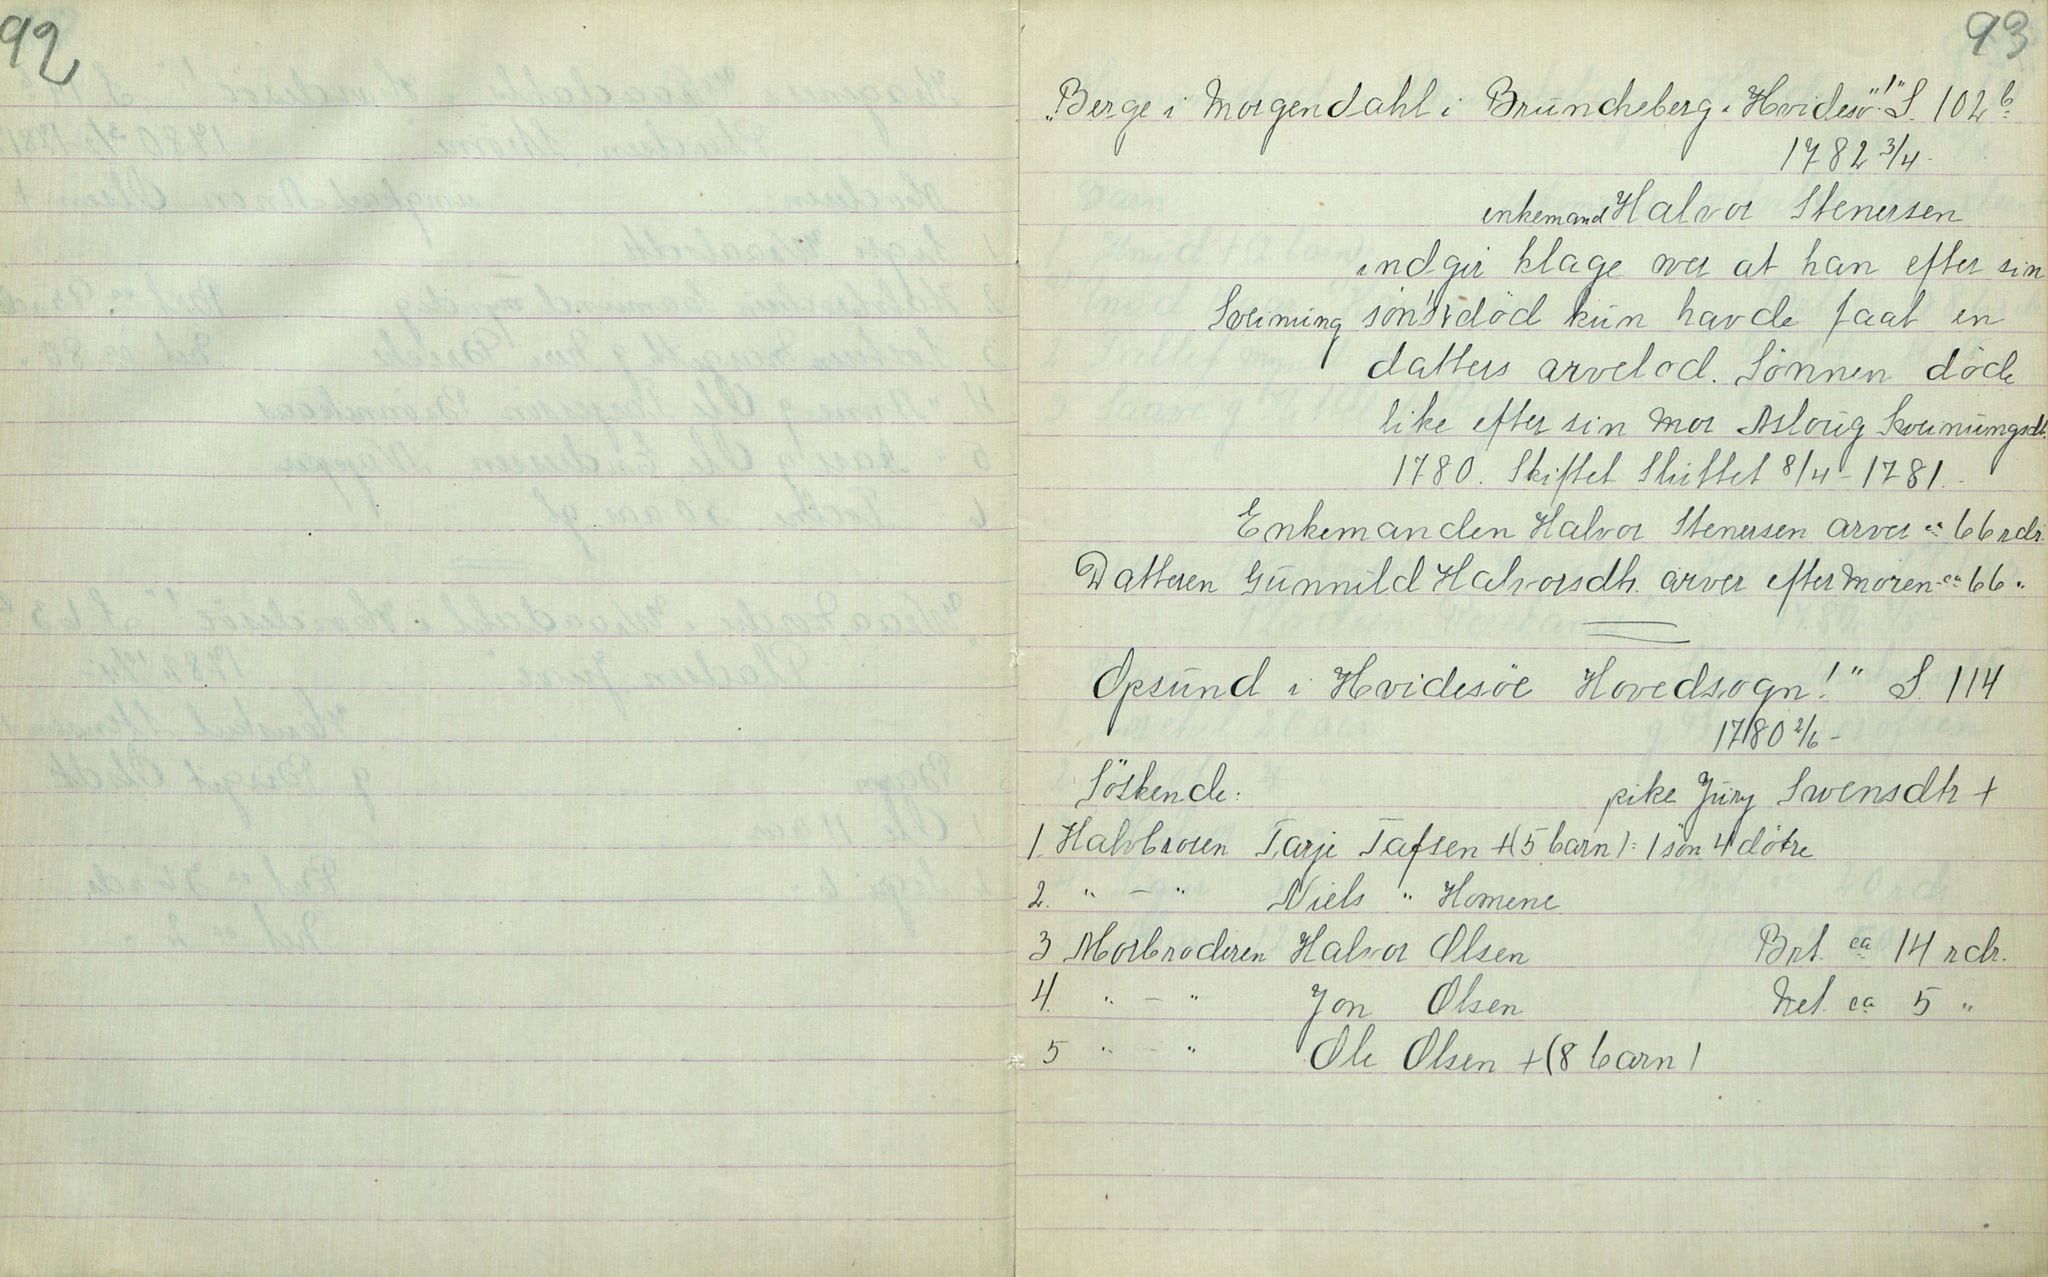 92
93
„Berge i Morgendahl i Brüncheberg i Hvidesö"!" S. 102 b.
1782 3/4 -
enkemand Halvor Stenersen
indgir klage over at han efter sin
Sveinung söns död kün havde faat en
datters arvelod. Sönnen döde
like efter sin mor Asloüg Sveinüngsdt.
1780. Skiftet Slüttet 8/4 - 1781. -
Enkemanden Halvor Stenersen arver ca 66 rdr.
Datteren Günnild Halvorsdtr. arver efter moren ca 66 "
Opsünd i Hvidesöe Hovedsogn!" S. 114
1780 2/6 -
Söskende:
pike Jüry Svensdtr +
1. Halvbroren Tarje Tafsen + (5 barn): 1 sön 4 dötre
2. " - " Niels " Homene
3 Morbroderen Halvor Olsen Brt. ca 14 rdr.
4. " - " Jon Olsen Net. ca 5 "
5 " - " Ole Olsen + (8 barn)